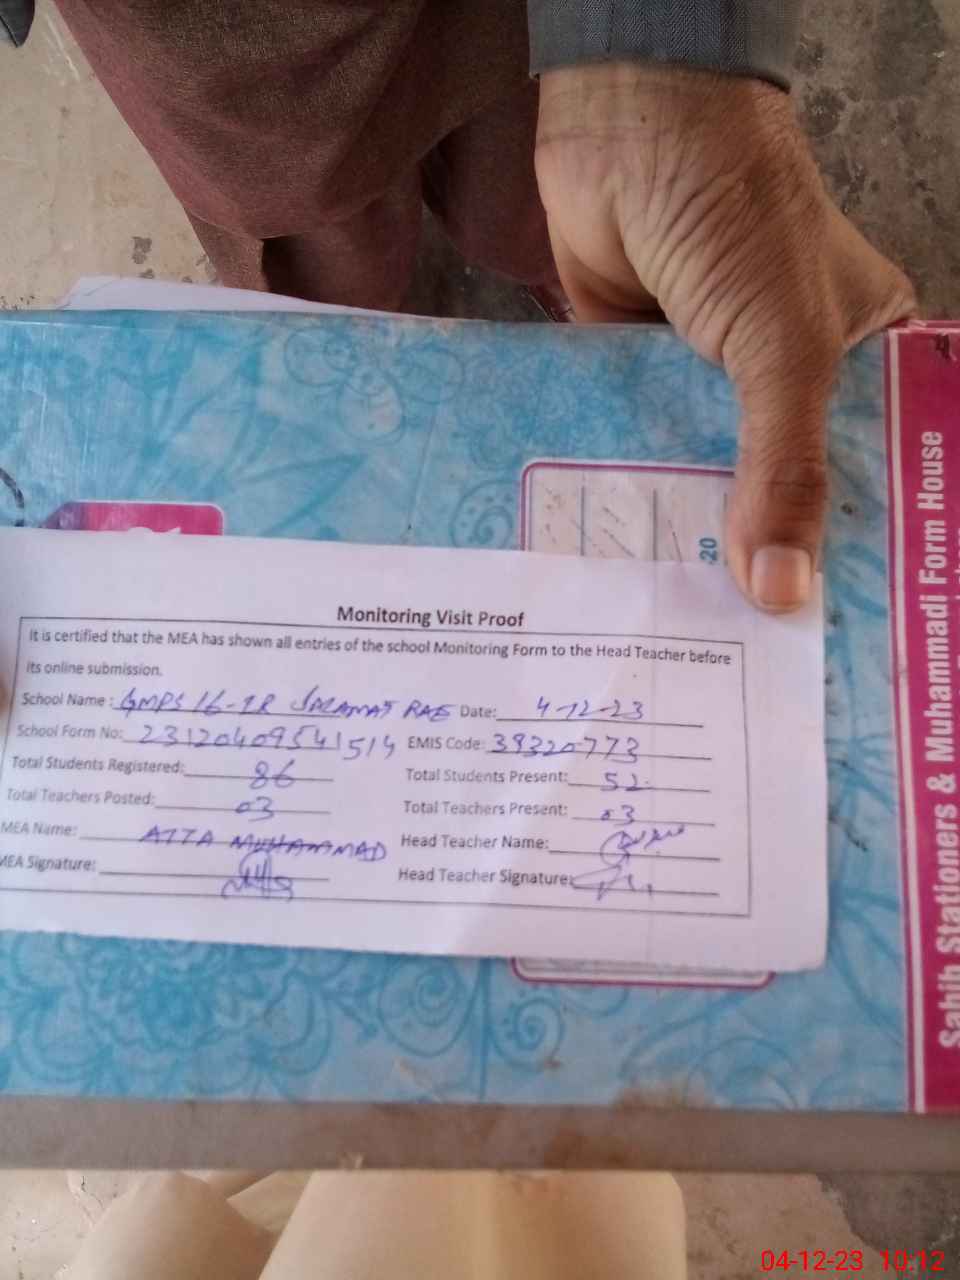 Monitoring Visit Proof
It is certified that the MEA has shown all entries of the school Monitoring Form to the Head Teacher before
its online submission.
School Name: GMPS 16-1R SALAMAT RAE Date: 4-12-23
School Form No: 23120409541514 EMIS Code: 39320773
Total Students Registered: 86 Total Students Present: 52
Total Teachers Posted: 03 Total Teachers Present: 03
MEA Name: ATTA MUHAMMAD Head Teacher Name:
MEA Signature: Head Teacher Signature:
20
Sahib Stationers & Muhammadi Form House
04-12-23 10:12